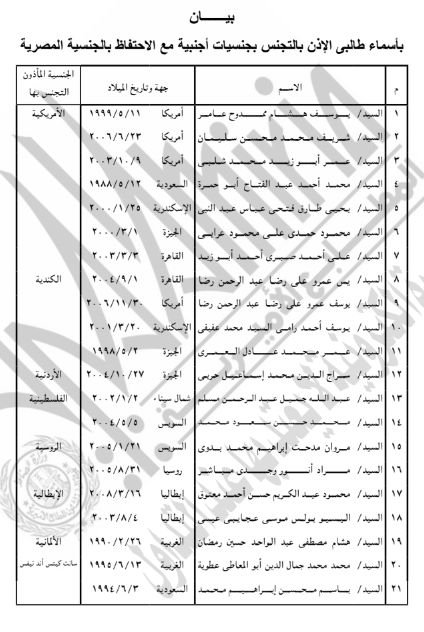 بيـــــان
بأسماء طالبى الإذن بالتجنس بجنسيات أجنبية مع الاحتفاظ بالجنسية المصرية
م الاســـم جهة وتاريخ الميلاد الجنسية المأذون التجنس بها
١ السيد/ يوسف هشام ممدوح عامر أمريكا ١٩٩٩/٥/١١ الأمريكية
٢ السيد/ شريف محمد محسن سليمان أمريكا ٢٠٠٦/٦/٢٣
٣ السيد/ عمر أبو زيد محمد شلبى أمريكا ٢٠٠٣/١٠/٩
٤ السيد/ محمد أحمد عبد الفتاح أبو حمرة السعودية ١٩٨٨/٥/١٢
٥ السيد/ يحيى طارق فتحى عباس عبد النبى الإسكندرية ٢٠٠٠/١/٢٥
٦ السيد/ محمود حمدى على محمود عرابى الجيزة ٢٠٠٠/٣/١
٧ السيد/ على أحمد صبرى أحمد أبو زيد القاهرة ٢٠٠٣/٣/٣
٨ السيد/ يس عمرو على رضا عبد الرحمن رضا القاهرة ٢٠٠٤/٩/١ الكندية
٩ السيد/ يوسف عمرو على رضا عبد الرحمن رضا أمريكا ٢٠٠٦/١١/٣٠
١٠ السيد/ يوسف أحمد رامى السيد محمد عفيفى الإسكندرية ٢٠٠١/٣/٢٠
١١ السيد/ عمر محمد عادل العمرى الجيزة ١٩٩٨/٥/٢
١٢ السيد/ سراج الدين محمد إسماعيل حربى الجيزة ٢٠٠٤/١٠/٢٧ الأردنية
١٣ السيد/ عبد الله جميل عبد الرحمن مسلم شمال سيناء ٢٠٠٢/١/٢ الفلسطينية
١٤ السيد/ محمد حسن سعود محمد السويس ٢٠٠٤/٥/٥
١٥ السيد/ مروان مدحت إبراهيم محمد بدوى السويس ٢٠٠٥/١/٢١ الروسية
١٦ السيد/ مراد أنور وجدى مباشر روسيا ٢٠٠٥/٨/٣١
١٧ السيد/ محمود عبد الكريم حسن أحمد معتوق إيطاليا ٢٠٠٨/٣/١٦ الإيطالية
١٨ السيد/ اليسيو بولس موسى عجايبى عيسى إيطاليا ٢٠٠٣/٨/٤
١٩ السيد/ هشام مصطفى عبد الواحد حسين رمضان الغربية ١٩٩٠/٢/٢٦ الألمانية
٢٠ السيد/ محمد محمد جمال الدين أبو المعاطى عطوية الغربية ١٩٩٥/٦/١٣ سانت كيتس أند نيفس
٢١ السيد/ باسم محسن إبراهيم محمد السعودية ١٩٩٤/٦/٣